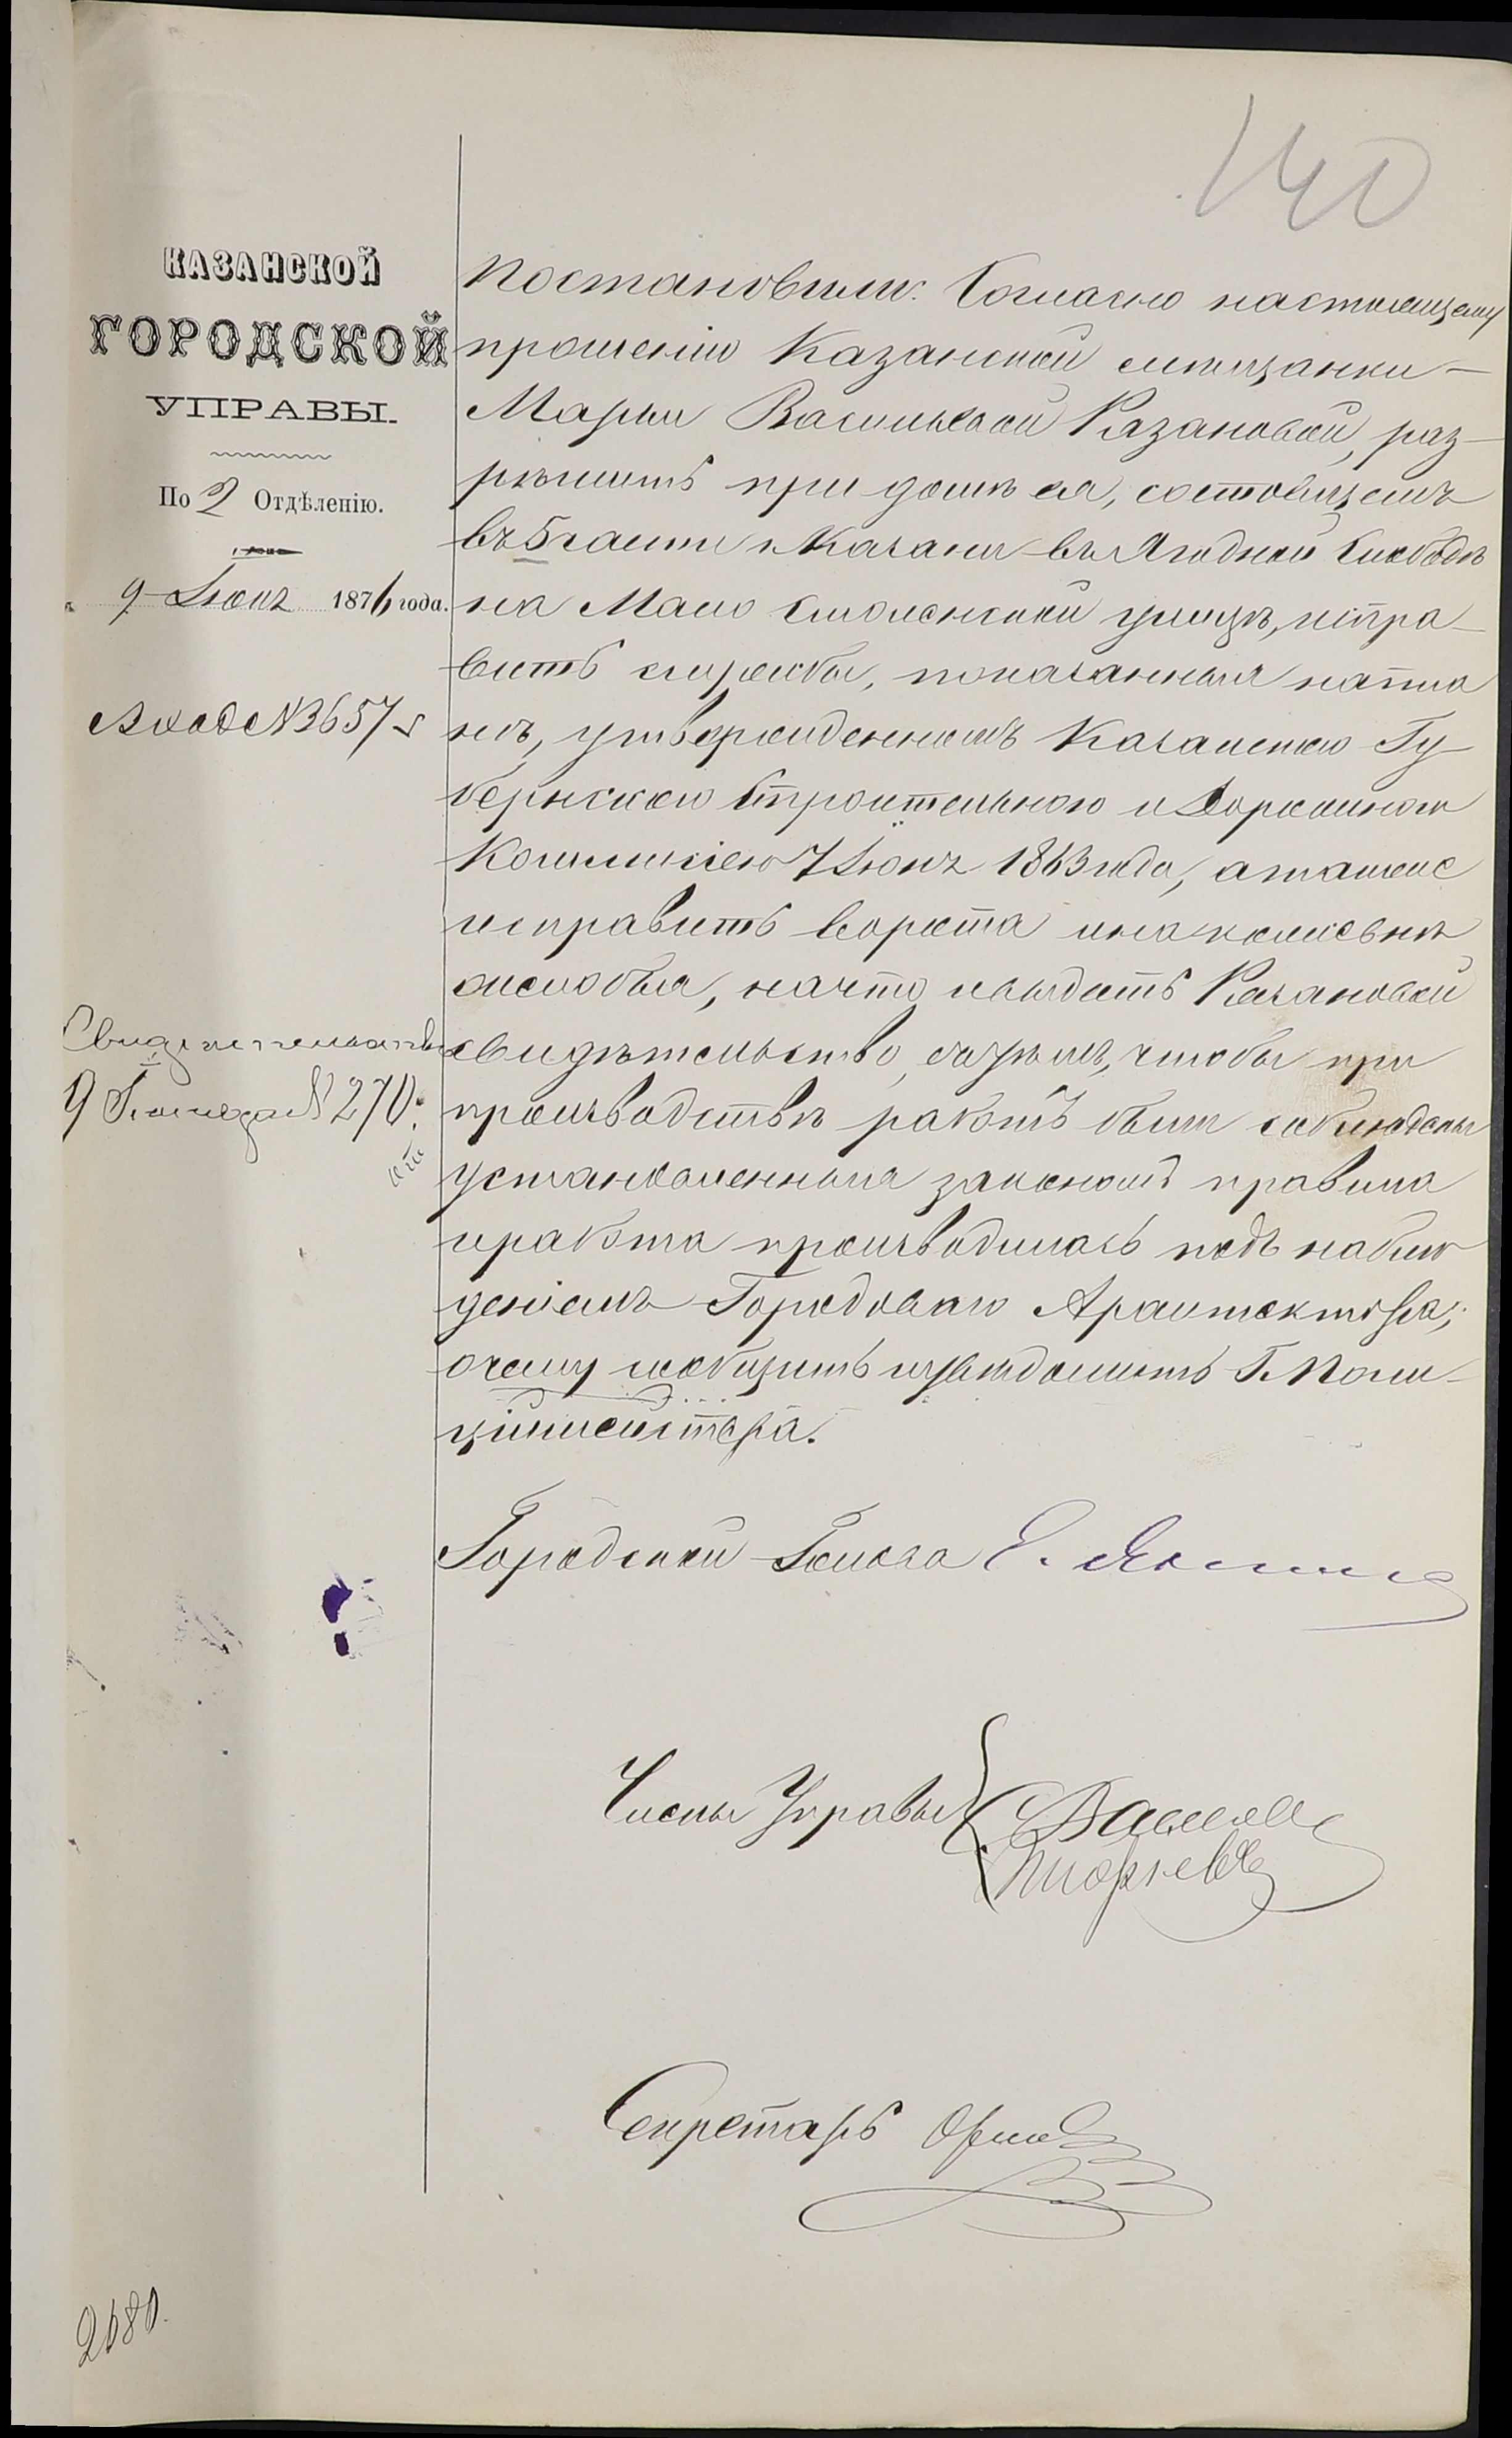 140
КАЗАНСКОЙ
ГОРОДСКОЙ
УПРАВЫ.
По 2 Отдѣленію.
9 Іюня 1876 года.
Вход № 3657
Свидетельство
9 № 270.
Постановили: Согласно настоящему
прошенію Казанской мѣщанки
Марьи Васильевой Рязановой, раз-
рѣшить при домѣ ея, состоящемъ
въ 5 части г. Казани въ Ягодной Слободѣ
на Мало Смоленской улицѣ, испра-
вить службы, показанныя на пла
нѣ, утвержденномъ Казанскою Гу-
бернскою Строительною и Дорожною
Коммисіею 7 Іюня 1863 года, а также
исправить ворота и на
жолобья, на что и выдать Рязановой
свидѣтельство, съ тѣмъ, чтобы при
производствѣ работъ были соблюдены
установленныя закономъ правила
и работа производилась подъ наблю
деніемъ Городоваго Архитектора;
о чемъ сообщить и увѣдомить Г. Поли-
ціймейстера.
Городской Голова Е.
Члены Управы
Секретарь Орлов
2680.